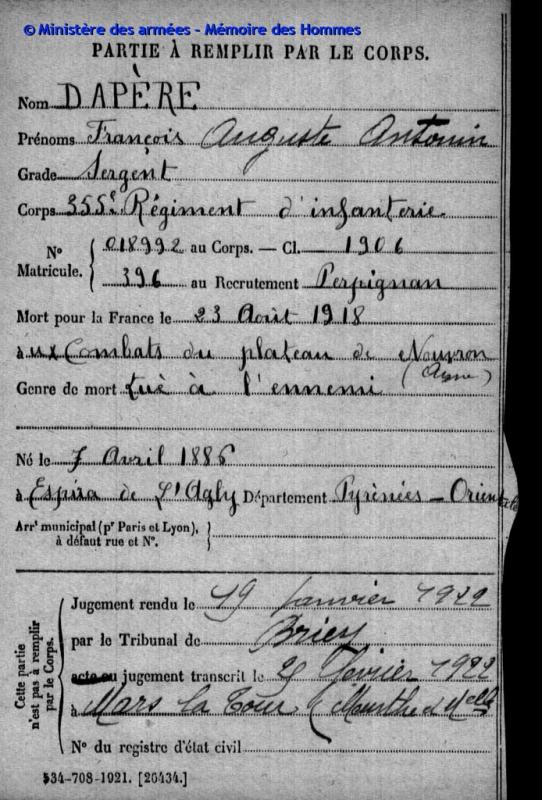 © Ministère des armées - Mémoire des Hommes
PARTIE À REMPLIR PAR LE CORPS.
Nom DAPÈRE
Prénoms François Auguste Antonin
Grade Sergent
Corps 355e Régiment d'infanterie.
N° Matricule. { 018992 au Corps. — Cl. 1906
396 au Recrutement Perpignan
Mort pour la France le 23 Août 1918
à ux Combats du plateau de Nouvron
(Aisne)
Genre de mort tué à l'ennemi
Né le 7 Avril 1886
à Espira de L'Agly Département Pyrénées - Orientales
Arrt municipal (pr Paris et Lyon),
à défaut rue et N°.
Cette partie n'est pas à remplir par le Corps.
Jugement rendu le 19 Janvier 1922
par le Tribunal de Briey
acte ou jugement transcrit le 25 Février 1922
à Mars la Tour (Meurthe et Melle)
N° du registre d'état civil
534-708-1921. [26434.]